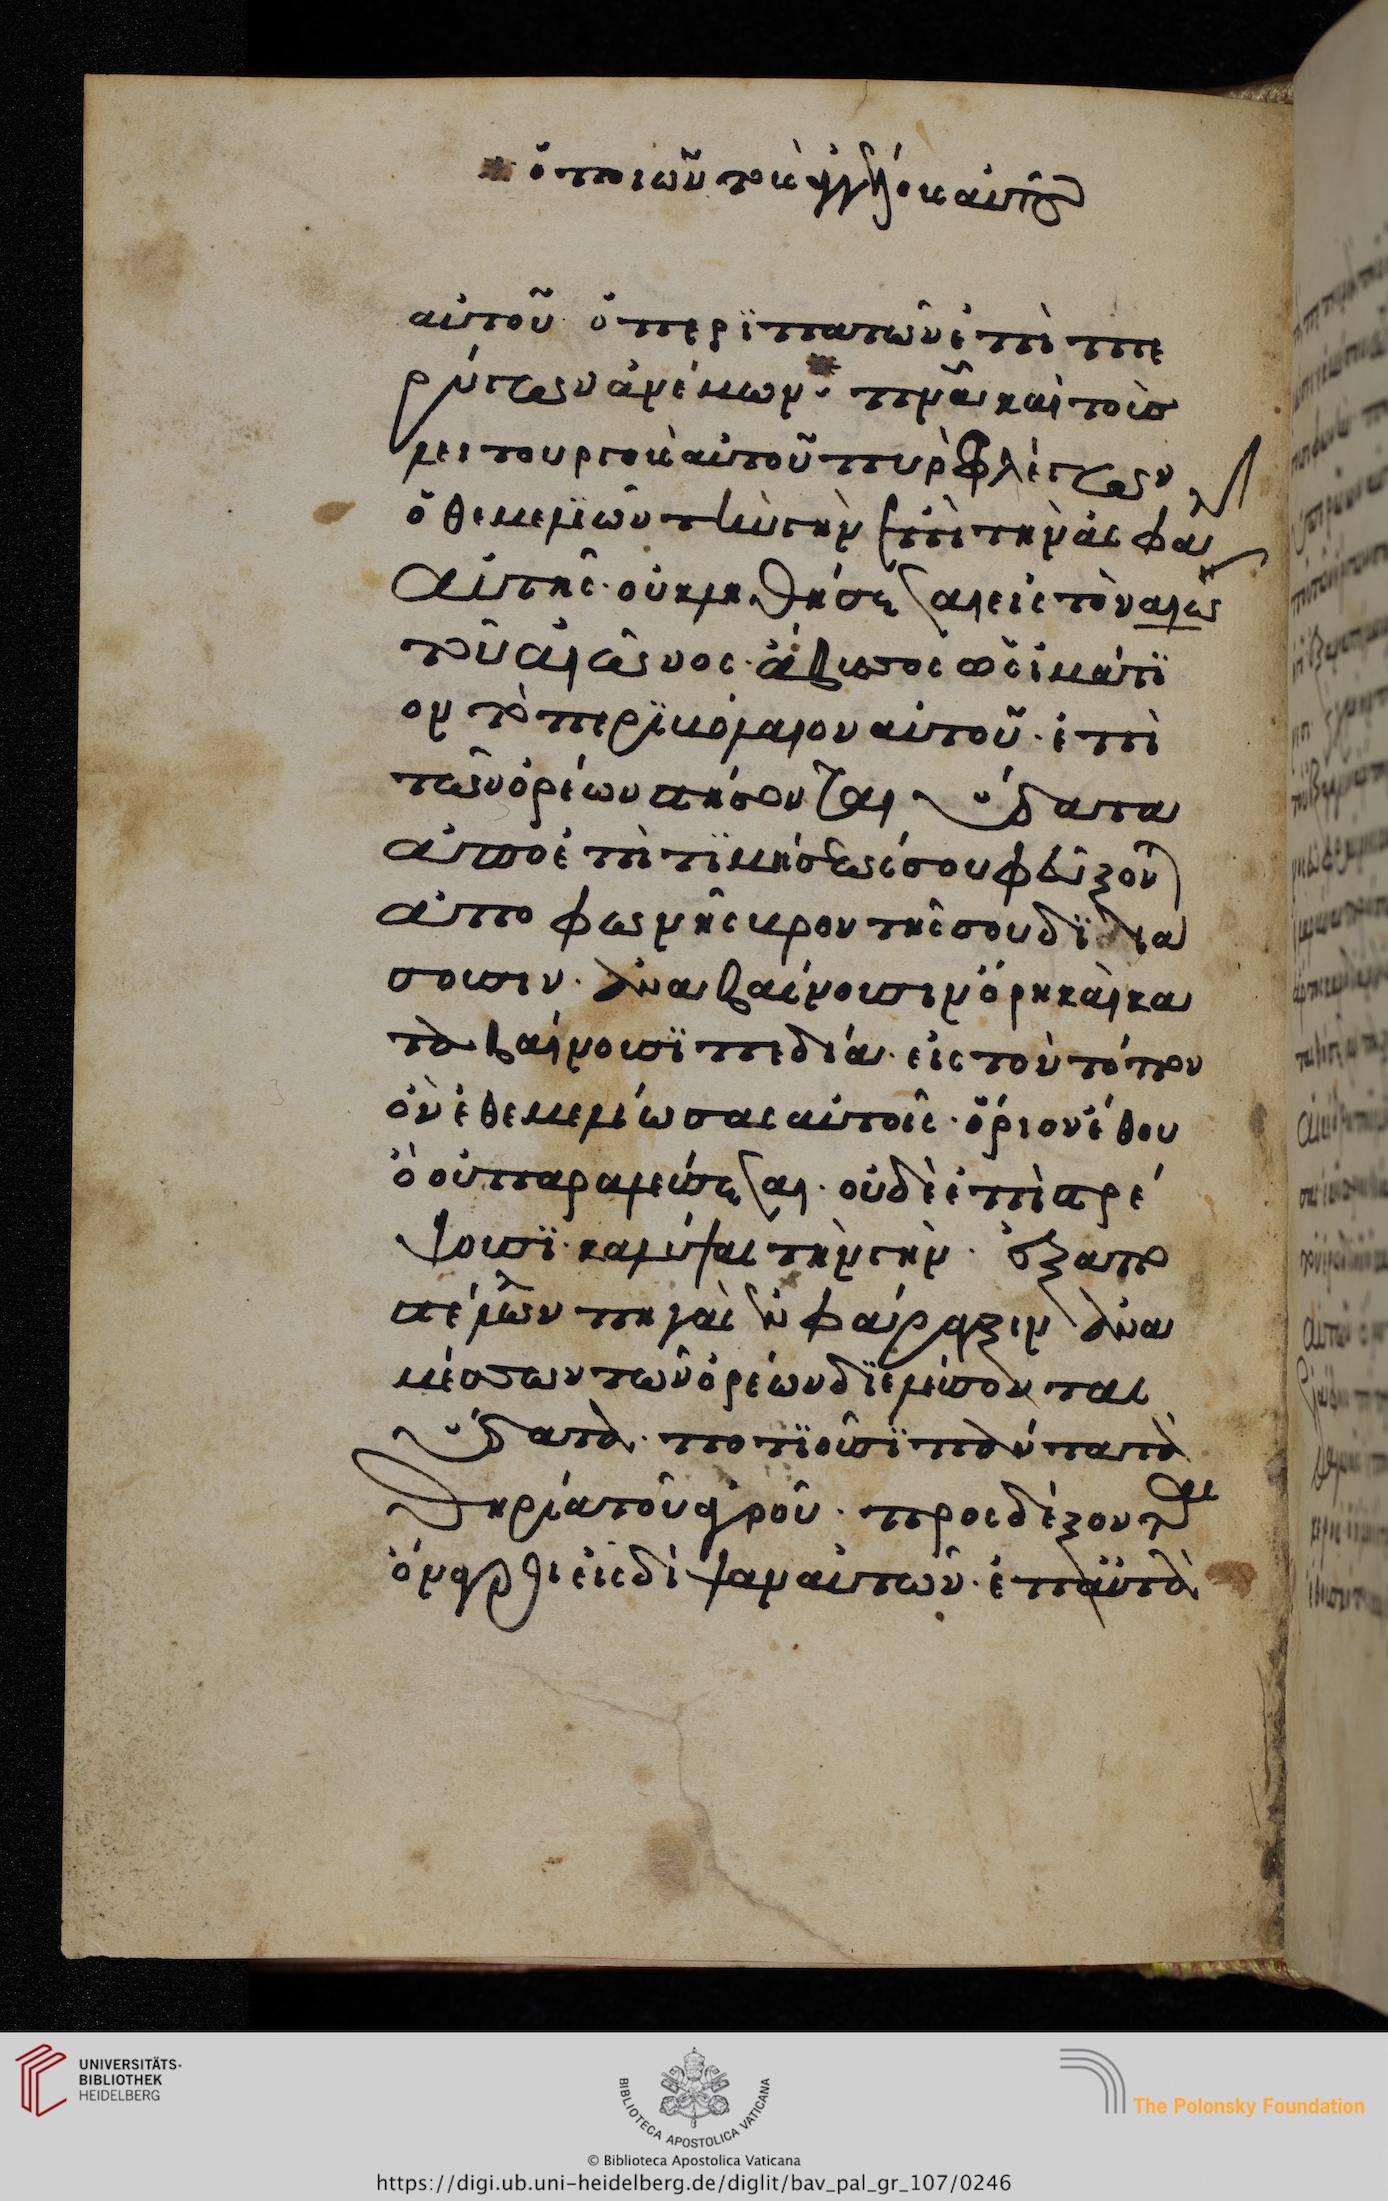 ὁ ποιῶν τοὺς ἀγγέλους αὐτοῦ
αὐτοῦ· ὁ περϊπατῶν ἐπὶ πτε
ρύγων ἀνέμων· πνᾶ καὶ τοὺσ
λειτουργοὺς αὐτοῦ πυρὸς φλέγων
ὁ θεμελϊῶν τὴν γῆν ἐπὶ τὴν ἀσφάλ
αὐτῆς· οὐ κληθήσεται εἰς τὸν αἰῶ
τοῦ αἰῶνος· ἄβυσσος ὡς ἱμάτϊ
ον τὸ περϊβόλαιον αὐτοῦ· ἐπὶ
τῶν ὀρέων στήσονται ὕδατα
ἀπὸ ἐπιτϊμήσεώς σου φεύξοντ
ἀπο φωνῆς βροντῆς σου δϊλια
σουσιν· ἀναβαίνουσιν ὄρη καὶ κα
ταβαίνουσϊ πεδία· εἰς τὸν τόπον
ὃν ἐθεμελίωσας αὐτοῖς· ὅριον ἔθου
ὃ οὐ παρελεύσεται· οὐδὲ ἐπιστρέ
ψουσϊ καλύψαι τὴν γῆν· ὁ ἐξαπο
στέλλων πηγὰς ἐν φάραγξιν ἀνα
μέσσων τῶν ὀρέων δϊελεύσονται
ὕδατα· ποτϊοῦσϊ πάντα τὰ
θηρία τοῦ ἀγροῦ· προςδέξονται
ὄναγροι εἰς δίψαν αὐτῶν· ἐπ' αὐτὰ
UNIVERSITÄTS-
BIBLIOTHEK
HEIDELBERG
BIBLIOTECA APOSTOLICA VATICANA
The Polonsky Foundation
© Biblioteca Apostolica Vaticana
https://digi.ub.uni-heidelberg.de/diglit/bav_pal_gr_107/0246